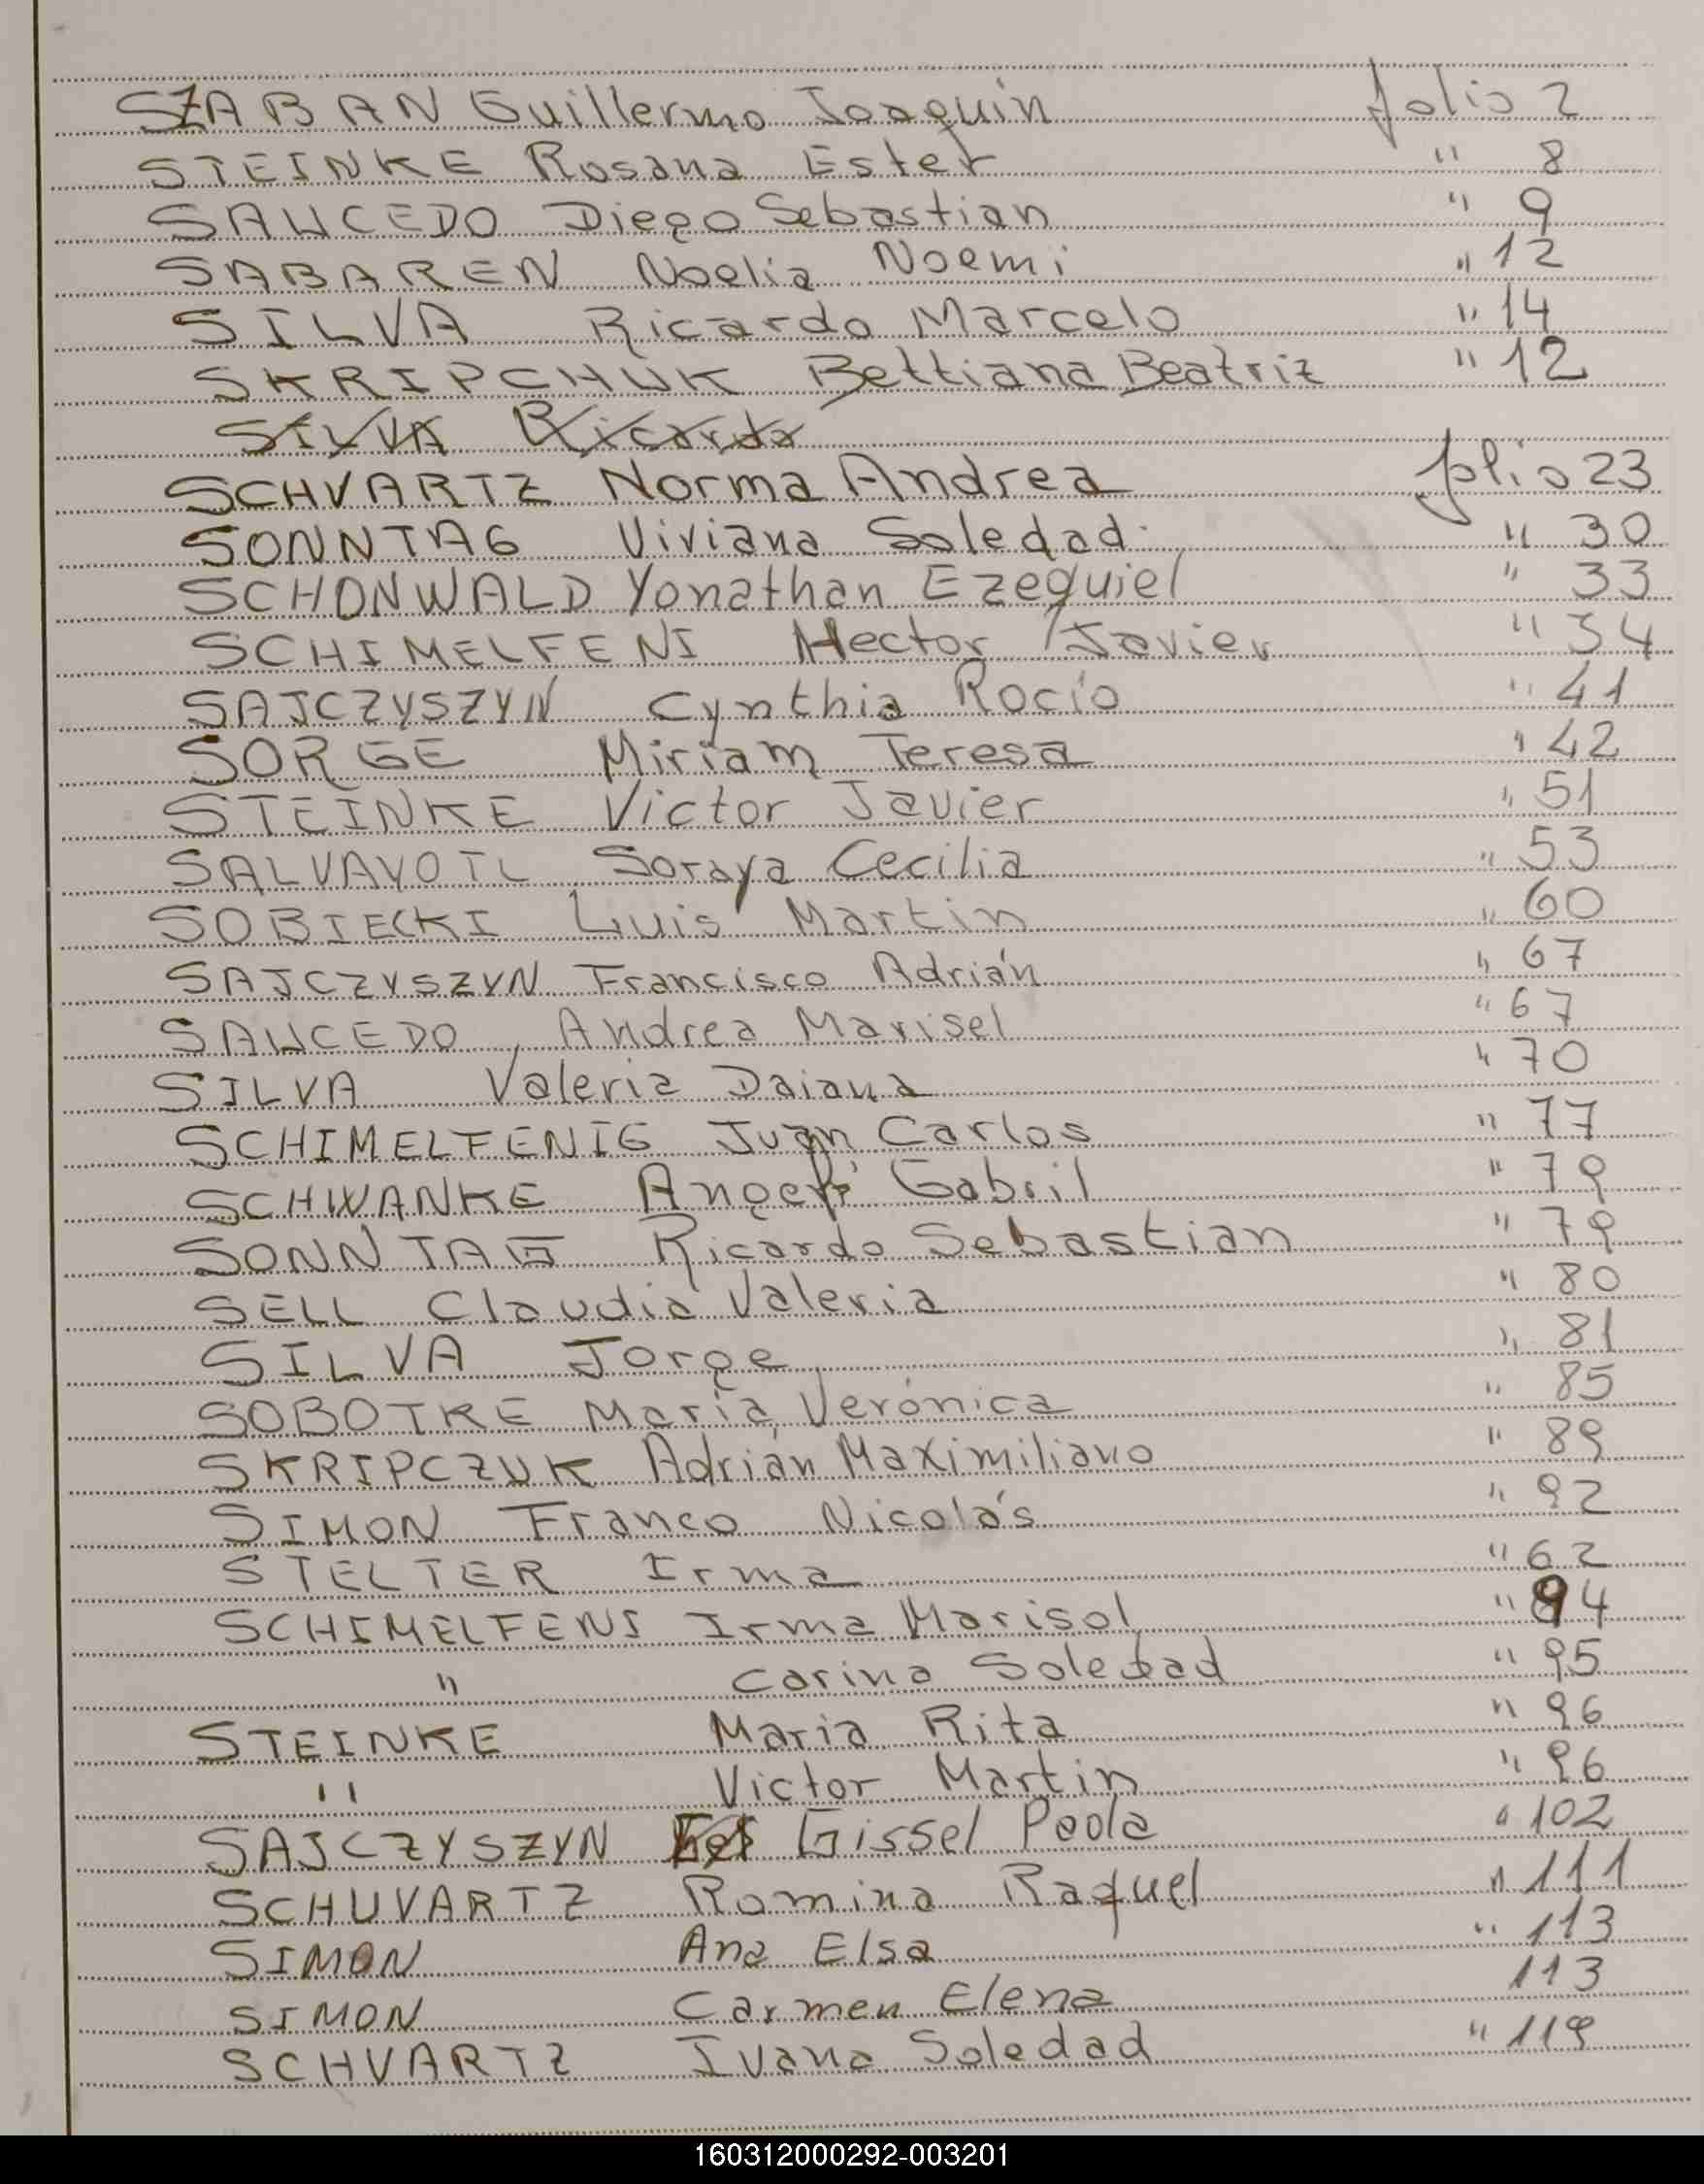 SZABAN Guillermo Joaquin folio 2
STEINKE Rosana Ester " 8
SAUCEDO Diego Sebastian " 9
SABAREN Noelia Noemi " 12
SILVA Ricardo Marcelo " 14
SKRIPCHUK Bettiana Beatriz " 12
SILVA Ricardo
SCHVARTZ Norma Andrea folio 23
SONNTAG Viviana Soledad " 30
SCHONWALD Yonathan Ezequiel " 33
SCHIMELFENI Hector Javier " 34
SAJCZYSZYN Cynthia Rocío " 41
SORGE Miriam Teresa " 42
STEINKE Victor Javier " 51
SALVAVOTL Soraya Cecilia " 53
SOBIECKI Luis Martin " 60
SAJCZYSZYN Francisco Adrián " 67
SAUCEDO Andrea Marisel " 67
SILVA Valeria Daiana " 70
SCHIMELFENIG Juan Carlos " 77
SCHWANKE Gabril " 79
SONNTAG Ricardo Sebastian " 79
SELL Claudia Valeria " 80
SILVA Jorge " 81
SOBOTKE María Verónica " 85
SKRIPCZUK Adrián Maximiliano " 89
SIMON Franco Nicolás " 92
STELTER Irma " 62
SCHIMELFENI Irma Marisol " 94
" Carina Soledad " 95
STEINKE Maria Rita " 96
" Victor Martin " 96
SAJCZYSZYN Gissel Paola " 102
SCHUVARTZ Romina Raquel " 111
SIMON Ana Elsa " 113
SIMON Carmen Elena 113
SCHVARTZ Ivana Soledad " 119
160312000292-003201